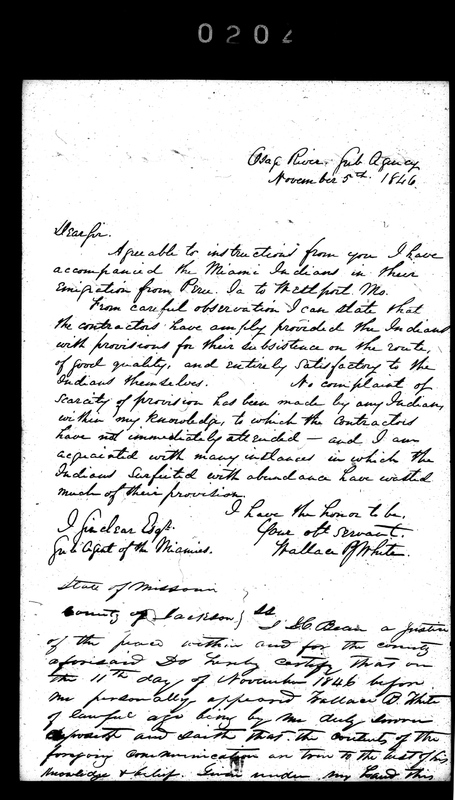 0202
Osage River, Sub Agency
November 5th 1846.
Dear Sir.
Agreeable to instructions from you I have
accompanied the Miami Indians in their
Emigration from Peru. Ia to Westport Mo.
From careful observation I can state that
the contractors have amply provided the Indians
with provisions for their subsistence on the route,
of good quality, and entirely satisfactory to the
Indians themselves. No complaint of
scarcity of provision has been made by any Indian,
within my knowledge, to which the contractors
have not immediately attended — and I am
acquainted with many instances in which the
Indians surfeited with abundance have wasted
much of their provision.
I have the honor to be,
Your obt servant.
J Sinclear Esqr.
Sub Agent of the Miamies.
Wallace B White.
State of Missouri
County of Jackson } SS
I Bean a Justice
of the peace within and for the county
aforisaid Do hereby certify that on
the 11th day of November 1846 before
me personally appeared Wallace B. White
of lawful age being by me duly sworn
deposeth and saith that the contents of the
forgoing communication are true to the best of his
knowledge & belief. Given under my hand this